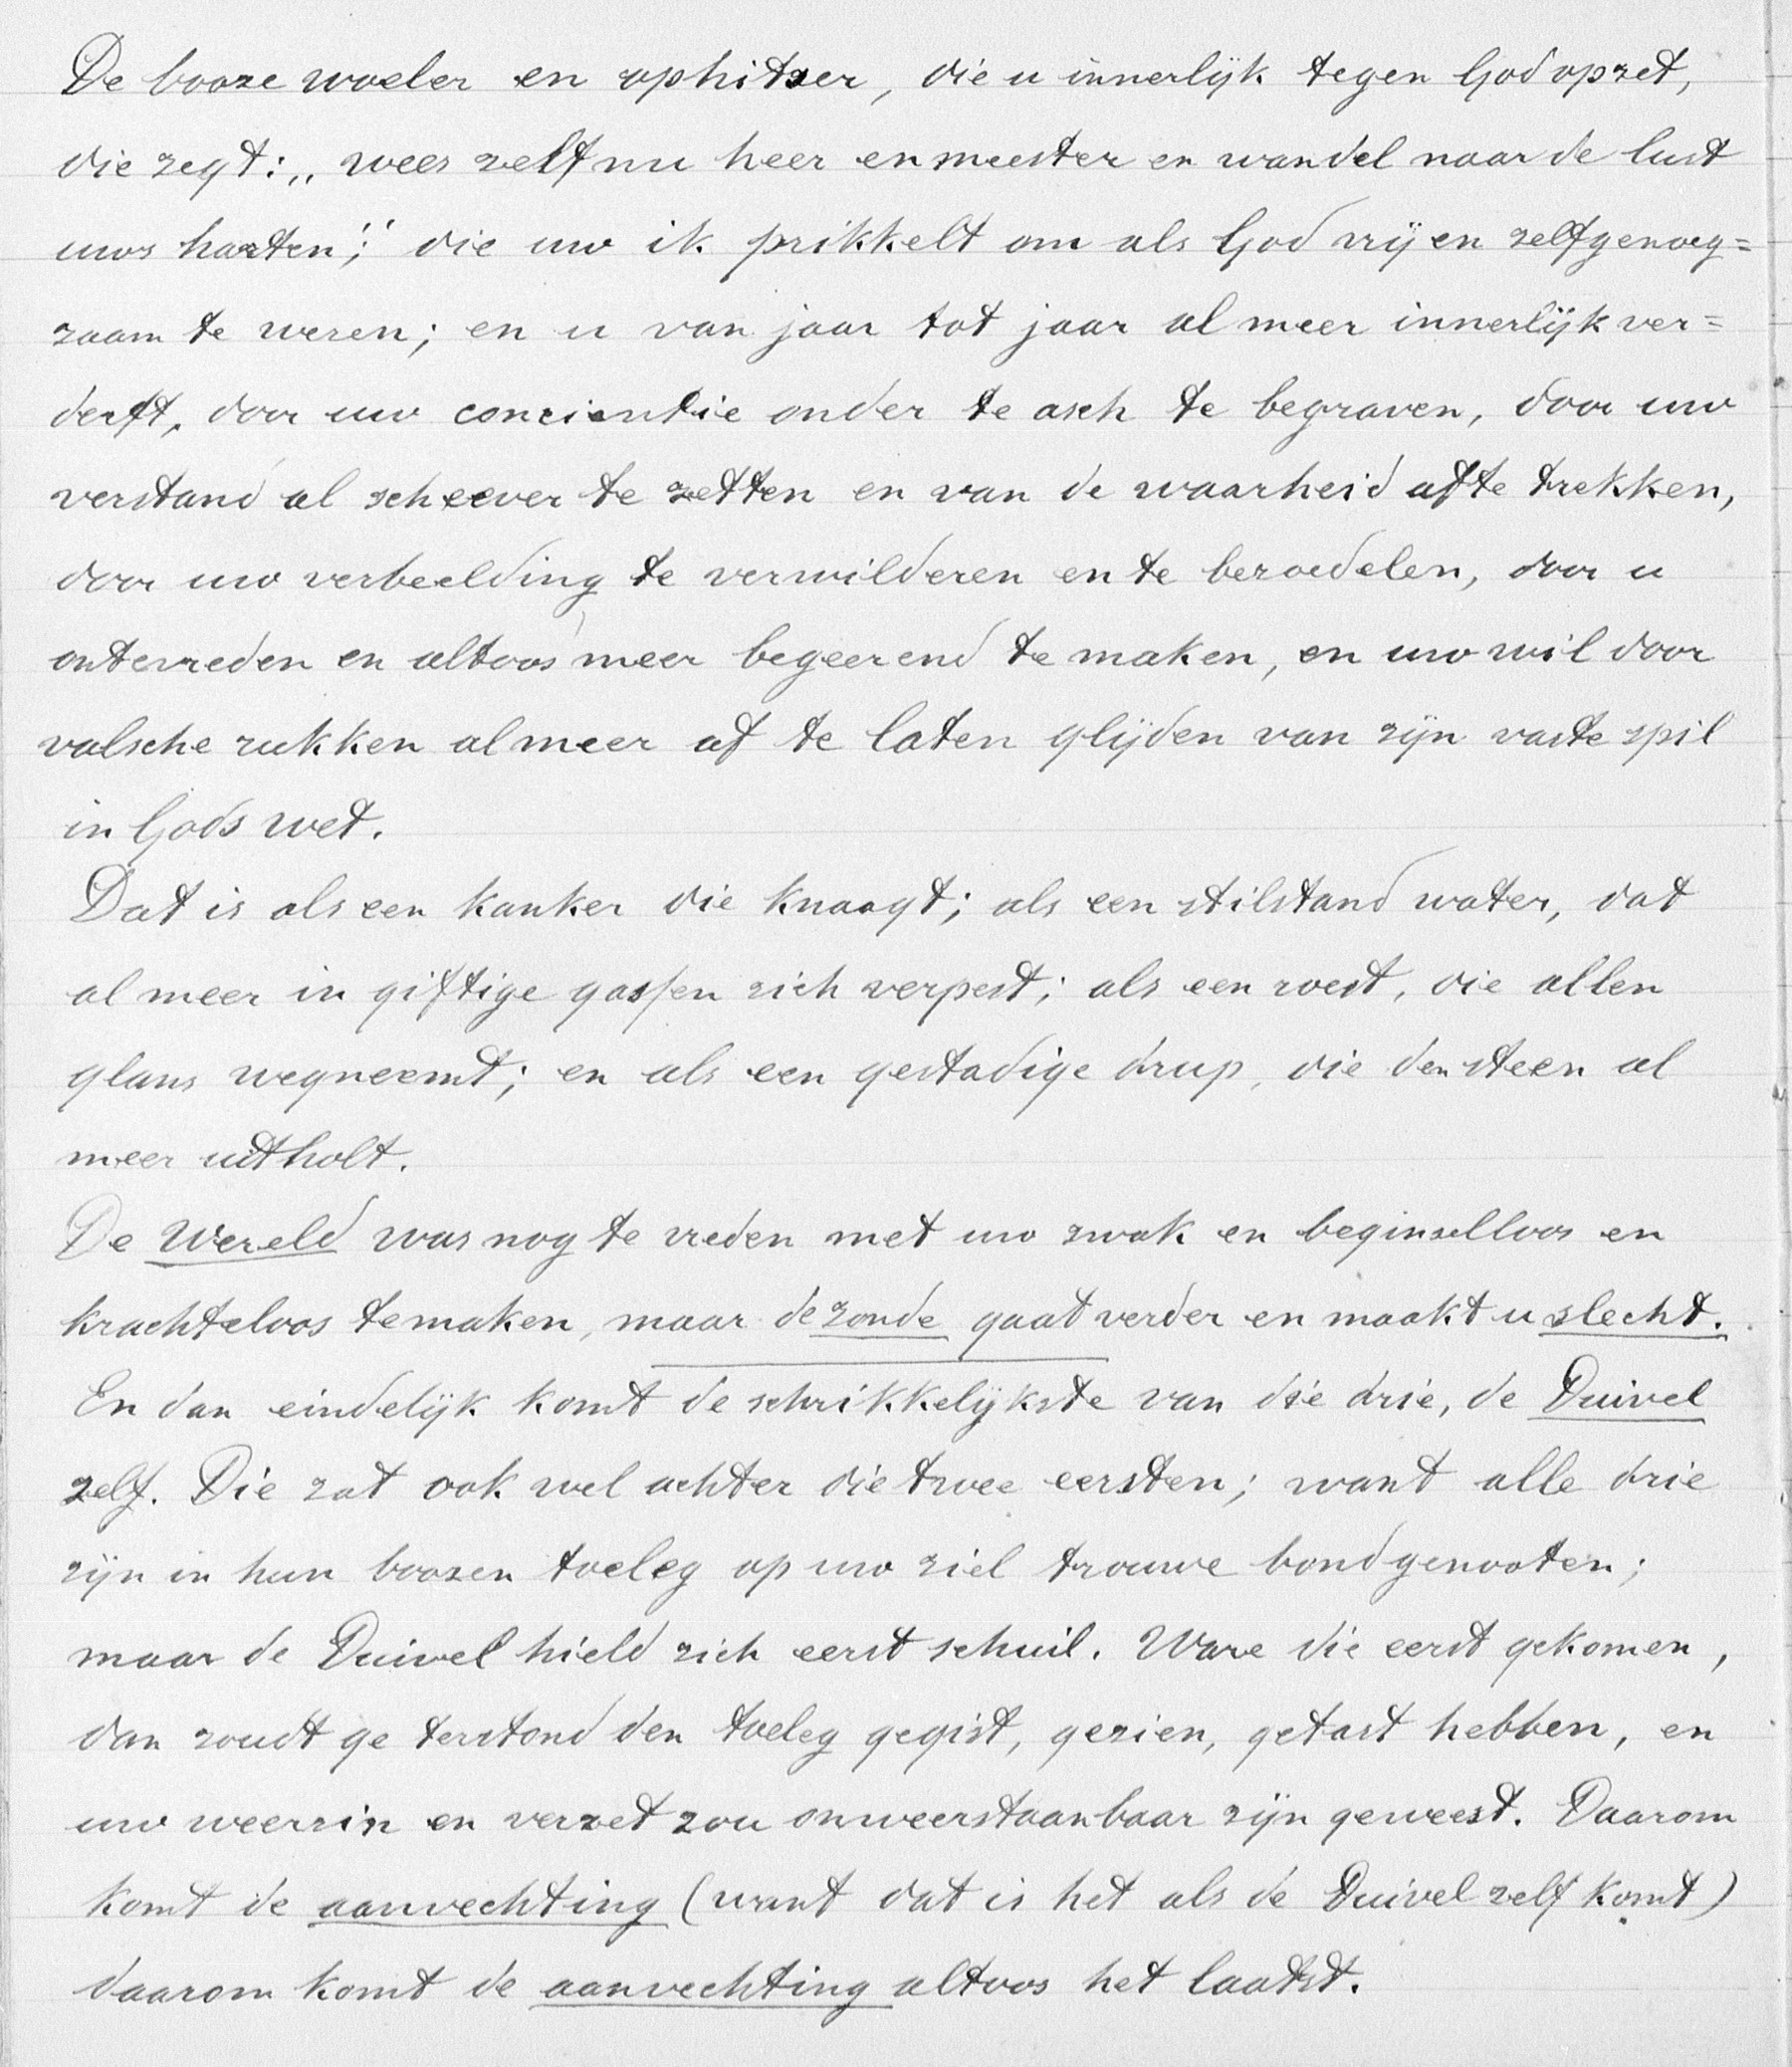 De booze woeler en ophitser, die u innerlijk tegen God opzet,
die zegt: „ wees zelf nu heer en meester en wandel naar de lust
uws harten"; die uw ik prikkelt om als God vrij en zelfgenoeg=
zaam te wezen; en u van jaar tot jaar al meer innerlijk ver=
derft, door uw concientie onder te asch te begraven, door uw
verstand al scheever te zetten en van de waarheid af te trekken,
door uw verbeelding te verwilderen en te bezoedelen, door u
ontevreden en altoos meer begeerend te maken, en uw wil door
valsche rukken al meer af te laten glijden van zijn vaste spil
in Gods wet.
Dat is als een kanker die knaagt; als een stilstand water, dat
al meer in giftige gassen zich verpest; als een roest, die allen
glans wegneemt; en als een gestadige drup, die den steen al
meer uitholt.
De Wereld was nog te vreden met uw zwak en beginselloos en
krachteloos te maken, maar de zonde gaat verder en maakt u slecht.
En dan eindelijk komt de schrikkelijkste van die drie, de Duivel
zelf. Die zat ook wel achter die twee eersten; want alle drie
zijn in hun boozen toeleg op uw ziel trouwe bondgenooten;
maar de Duivel hield zich eerst schuil. Ware die eerst gekomen,
dan zoudt ge terstond den toeleg gegist, gezien, getast hebben, en
uw weerzin en verzet zou onweerstaanbaar zijn geweest. Daarom
komt de aanvechting (want dat is het als de Duivel zelf komt)
daarom komt de aanvechting altoos het laatst.